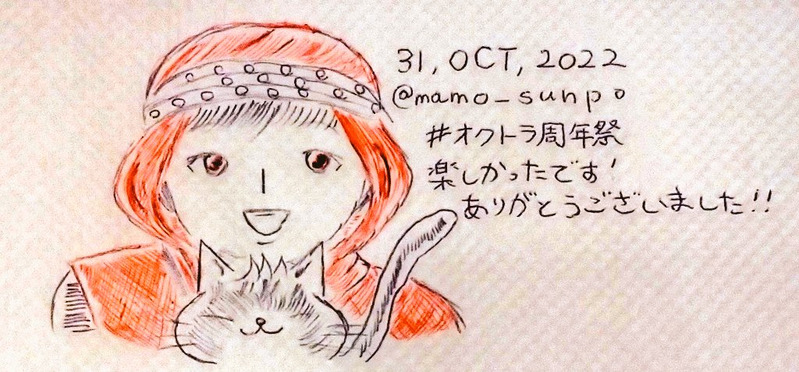 31, OCT, 2022
@mamo_sunpo
#オクトラ周年祭
楽しかったです!
ありがとうございました!!